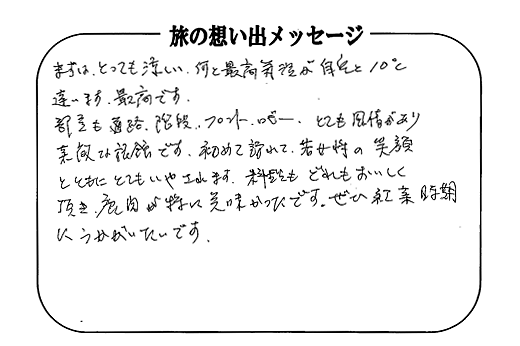 旅の想い出メッセージ
まずは、とっても涼しい、何と最高気温が自宅と10℃
違います。最高です。
部屋も通路、階段、フロント、ロビー、とても風情があり
素敵な旅館です。初めて訪れて、若女将の笑顔
とともにとてもいやされます。料理もどれもおいしく
頂き、鹿肉が特に美味かったです。ぜひ紅葉時期
にうかがいたいです。